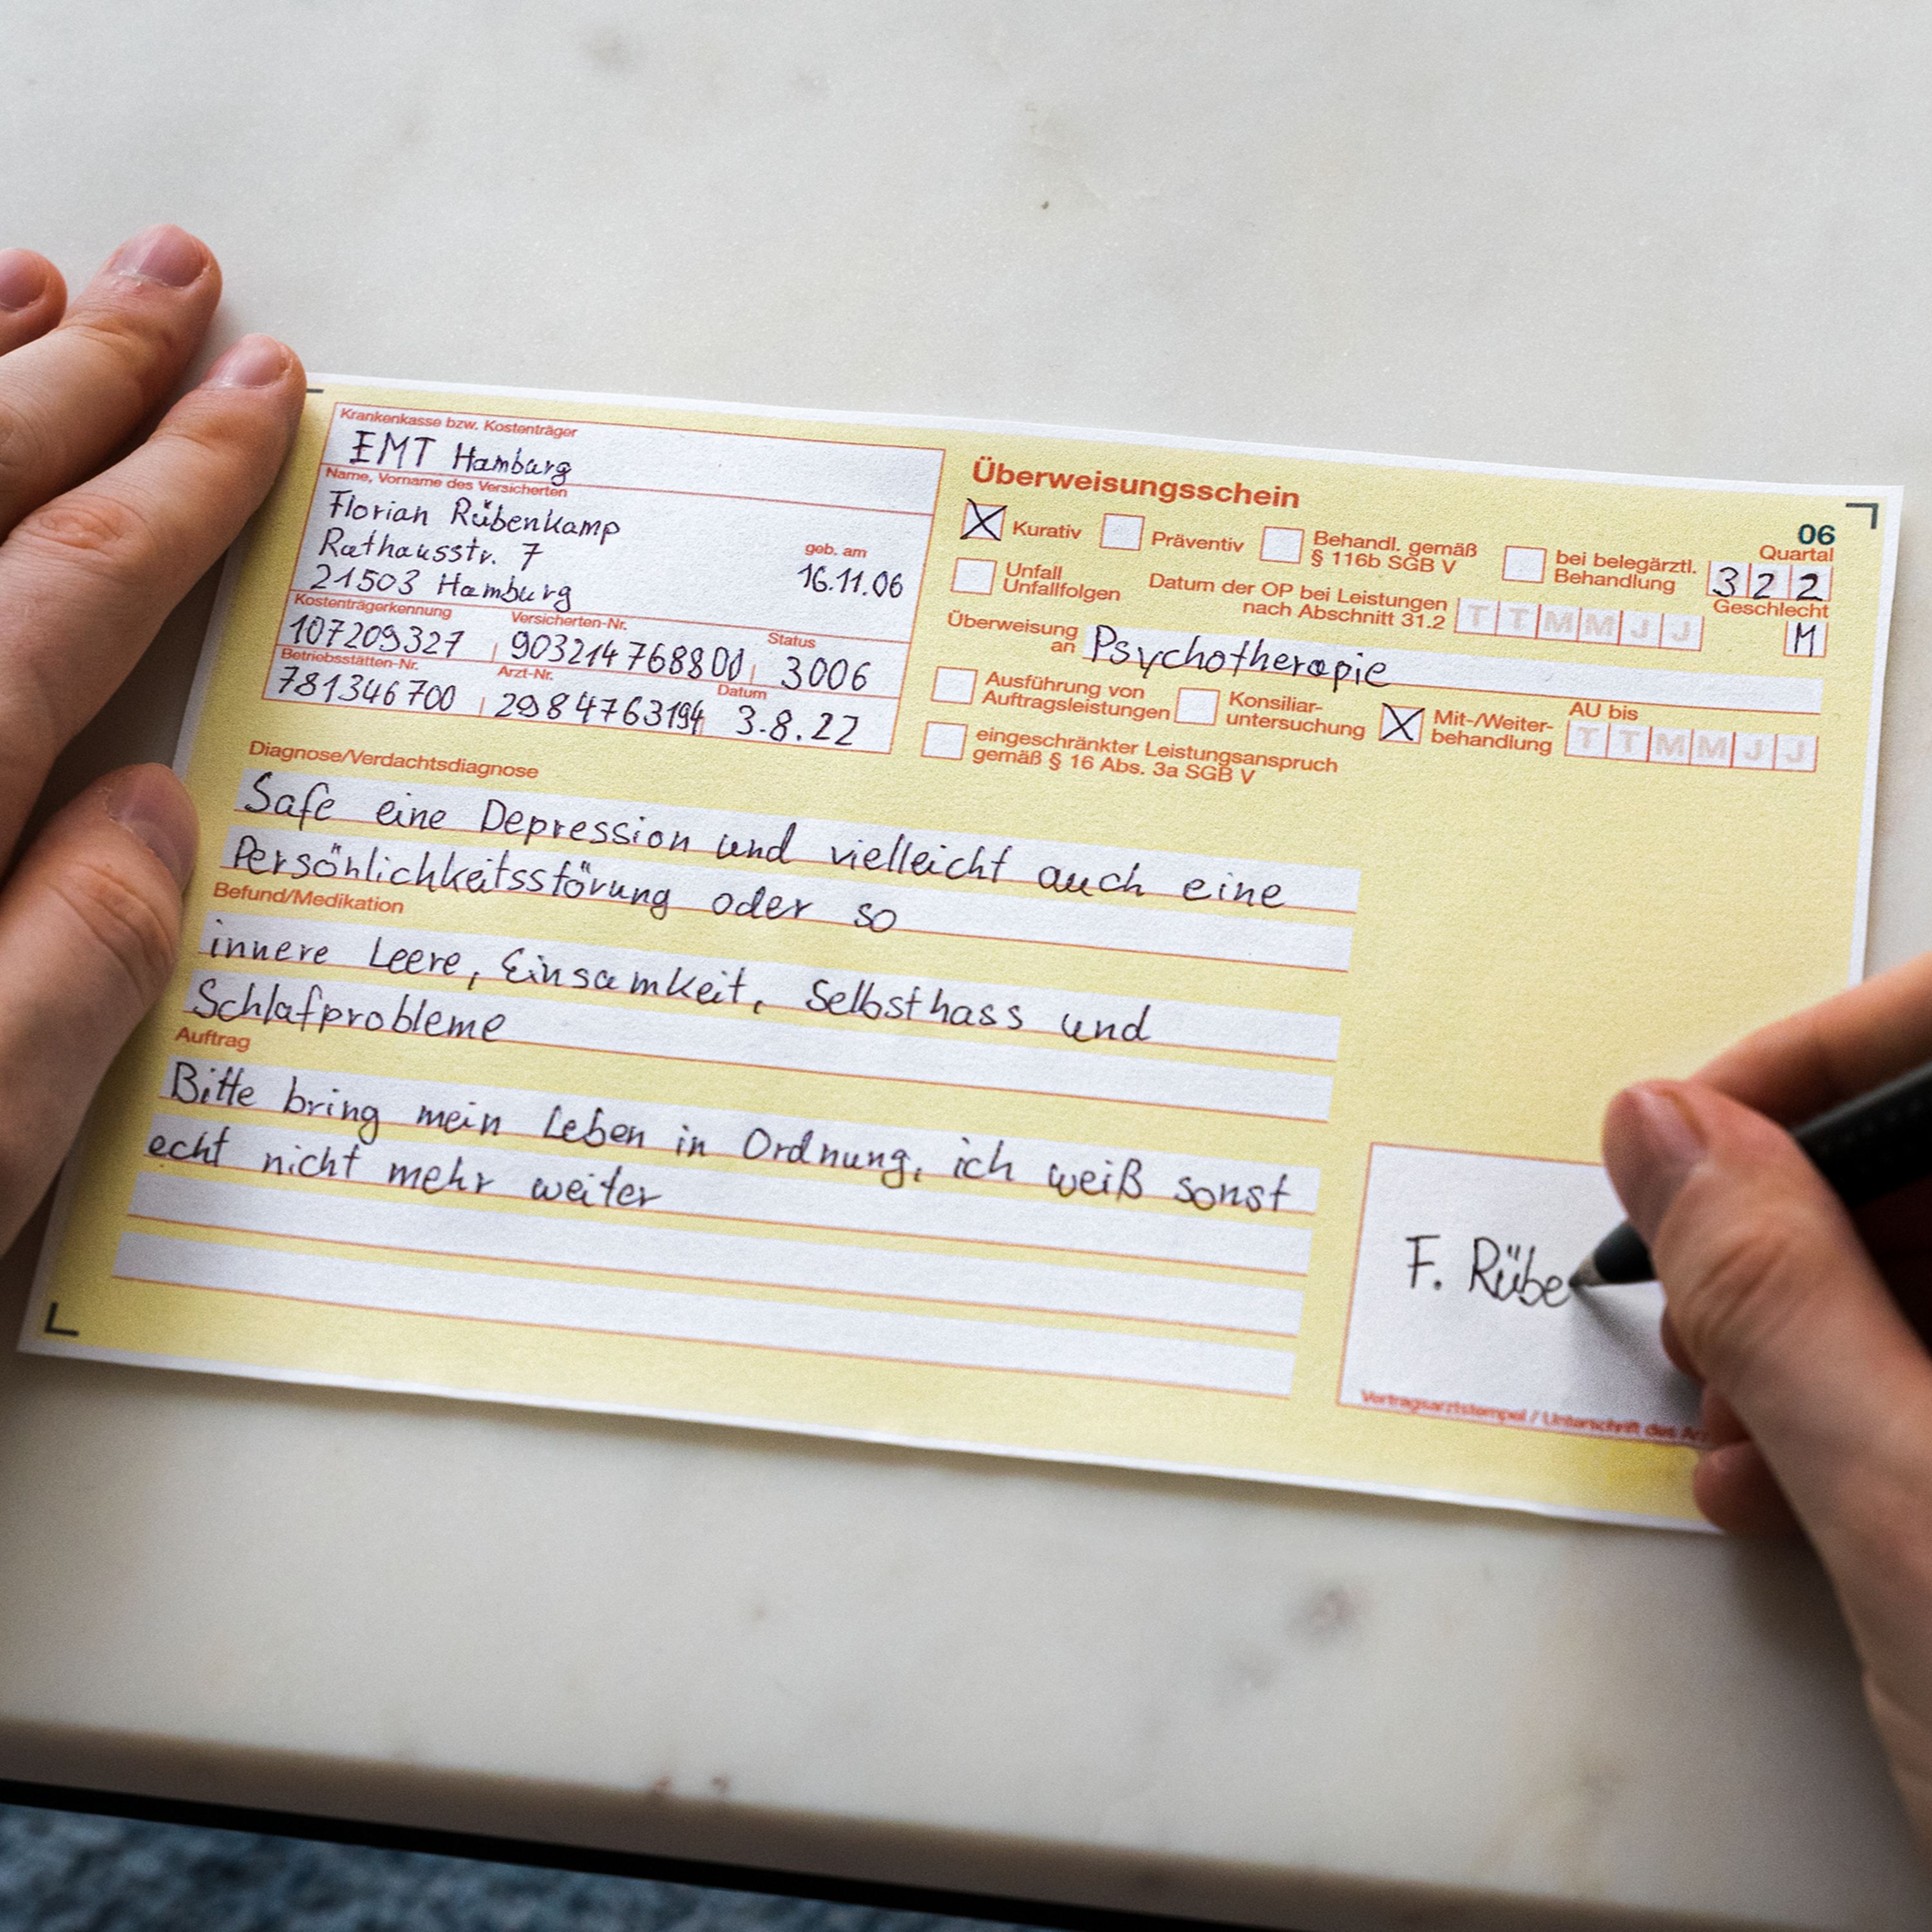 Krankenkasse bzw. Kostenträger
EMT Hamburg
Name, Vorname des Versicherten
Florian Rübenkamp
Rathausstr. 7
geb. am
21503 Hamburg
16.11.06
Kostenträgerkennung Versicherten-Nr. Status
107209327 903214768800 3006
Betriebsstätten-Nr. Arzt-Nr. Datum
781346700 2984763194 3.8.22
Überweisungsschein
06
Quartal
X Kurativ Präventiv Behandl. gemäß
§ 116b SGB V
bei belegärztl.
Behandlung
322
Unfall
Unfallfolgen
Datum der OP bei Leistungen
nach Abschnitt 31.2
TTMMJJ
Geschlecht
M
Überweisung
an
Psychotherapie
Ausführung von
Auftragsleistungen
Konsiliar-
untersuchung
X Mit-/Weiter-
behandlung
AU bis
TTMMJJ
eingeschränkter Leistungsanspruch
gemäß § 16 Abs. 3a SGB V
Diagnose/Verdachtsdiagnose
Safe eine Depression und vielleicht auch eine
Persönlichkeitsstörung oder so
Befund/Medikation
innere Leere, Einsamkeit, Selbsthass und
Schlafprobleme
Auftrag
Bitte bring mein Leben in Ordnung, ich weiß sonst
echt nicht mehr weiter
F. Rübe
Vertragsarztstempel / Unterschrift des